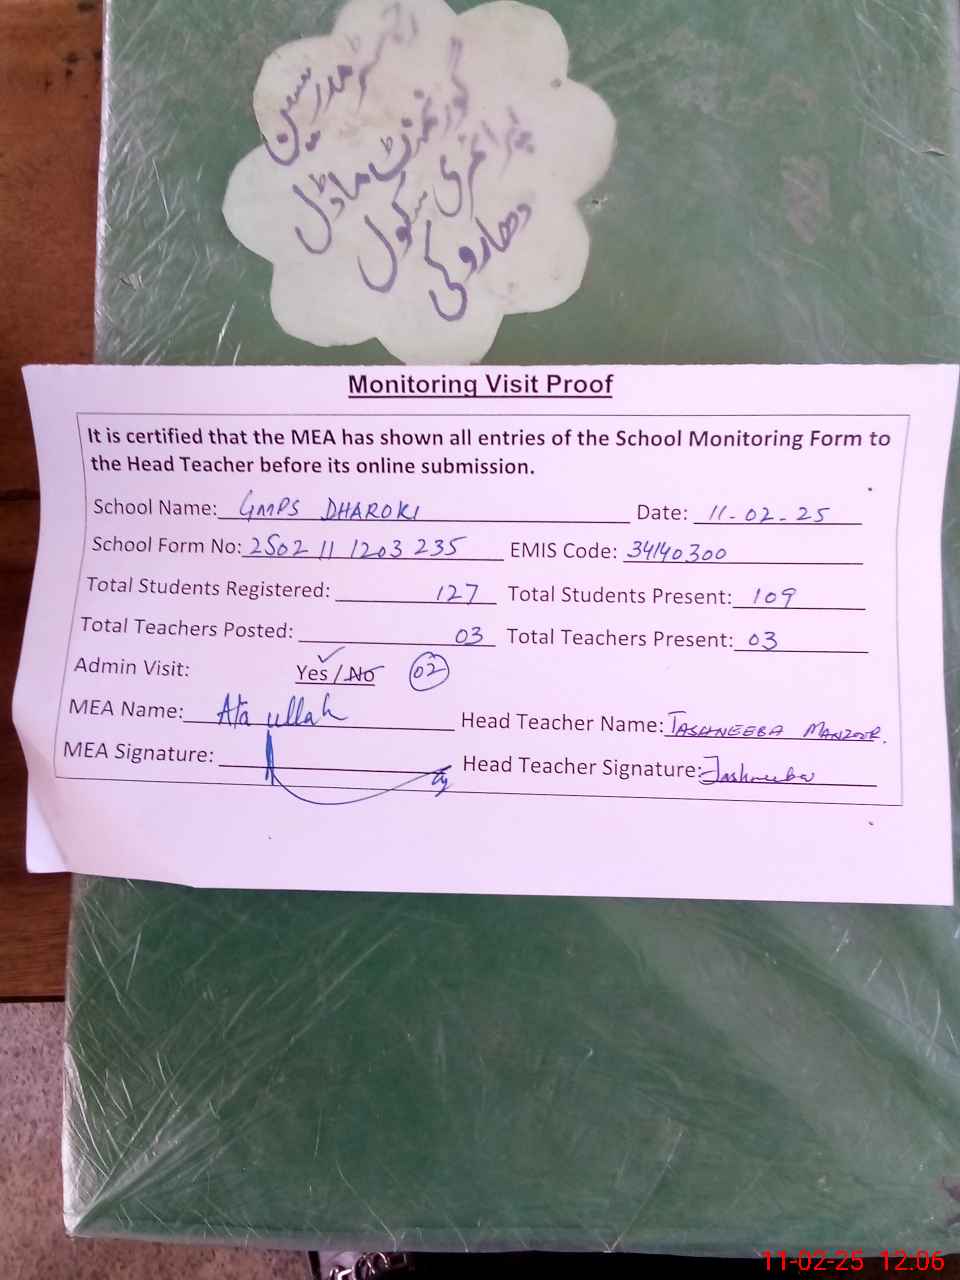 رجسٹر مدرسین
گورنمنٹ ماڈل
پرائمری سکول
دھاروکی
Monitoring Visit Proof
It is certified that the MEA has shown all entries of the School Monitoring Form to
the Head Teacher before its online submission.
School Name: GMPS DHAROKI Date: 11-02-25
School Form No: 2502 11 1203 235 EMIS Code: 34140300
Total Students Registered: 127 Total Students Present: 109
Total Teachers Posted: 03 Total Teachers Present: 03
Admin Visit: Yes / No 02
MEA Name: Ata ullah Head Teacher Name: TASHNEEBA MANZOOR.
MEA Signature: Head Teacher Signature: Tashneeba
11-02-25 12.06